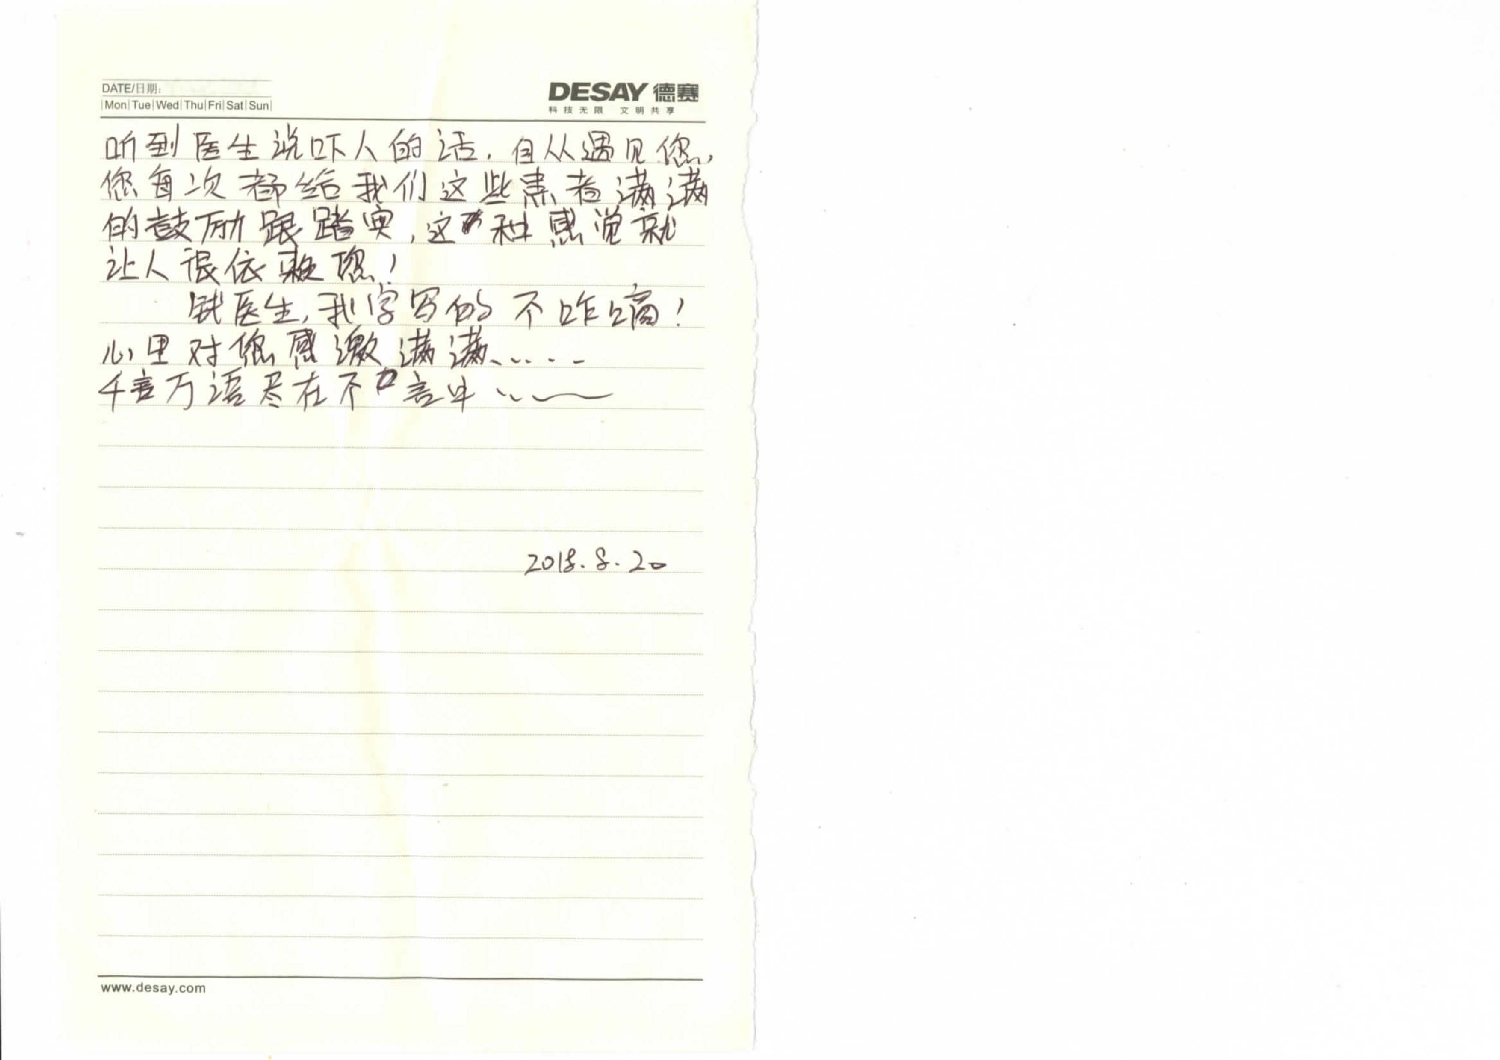 DATE/日期:
Mon Tue Wed Thu Fri Sat Sun
DESAY 德赛
科技无限 文明共享
听到医生说吓人的话，自从遇见您，
您每次都给我们这些患者满满
的鼓励跟踏实，这种感觉就
让人很依赖您！
钱医生，我字写的不咋嘀！
心里对您感激满满……
千言万语尽在不言中……
2018.8.20
www.desay.com